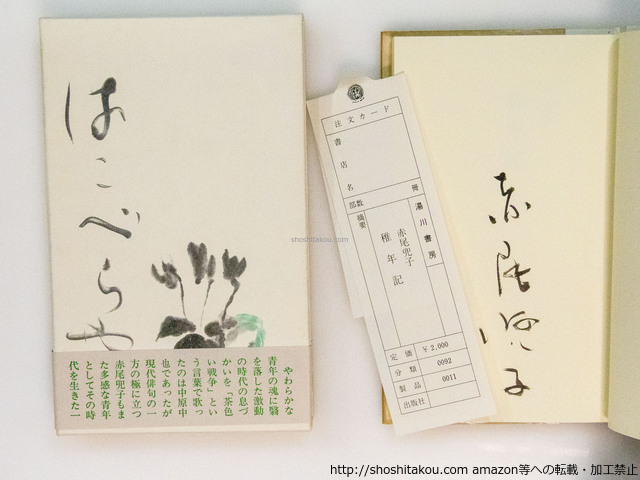 はこべらや
やわらかな
青年の魂に翳
を落した激動
の時代の息づ
かいを「茶色
い戦争」とい
う言葉で歌っ
たのは中原中
也であったが
現代俳句の一
方の極に立つ
赤尾兜子もま
た多感な青年
としてその時
代を生きた一
注文カード
書店名
部数
冊
摘要
湯川書房
赤尾兜子
稚年記
定価 ¥2,000
分類 0092
製品 0011
出版社
赤尾兜子
shoshitakou.com
http://shoshitakou.com amazon等への転載・加工禁止